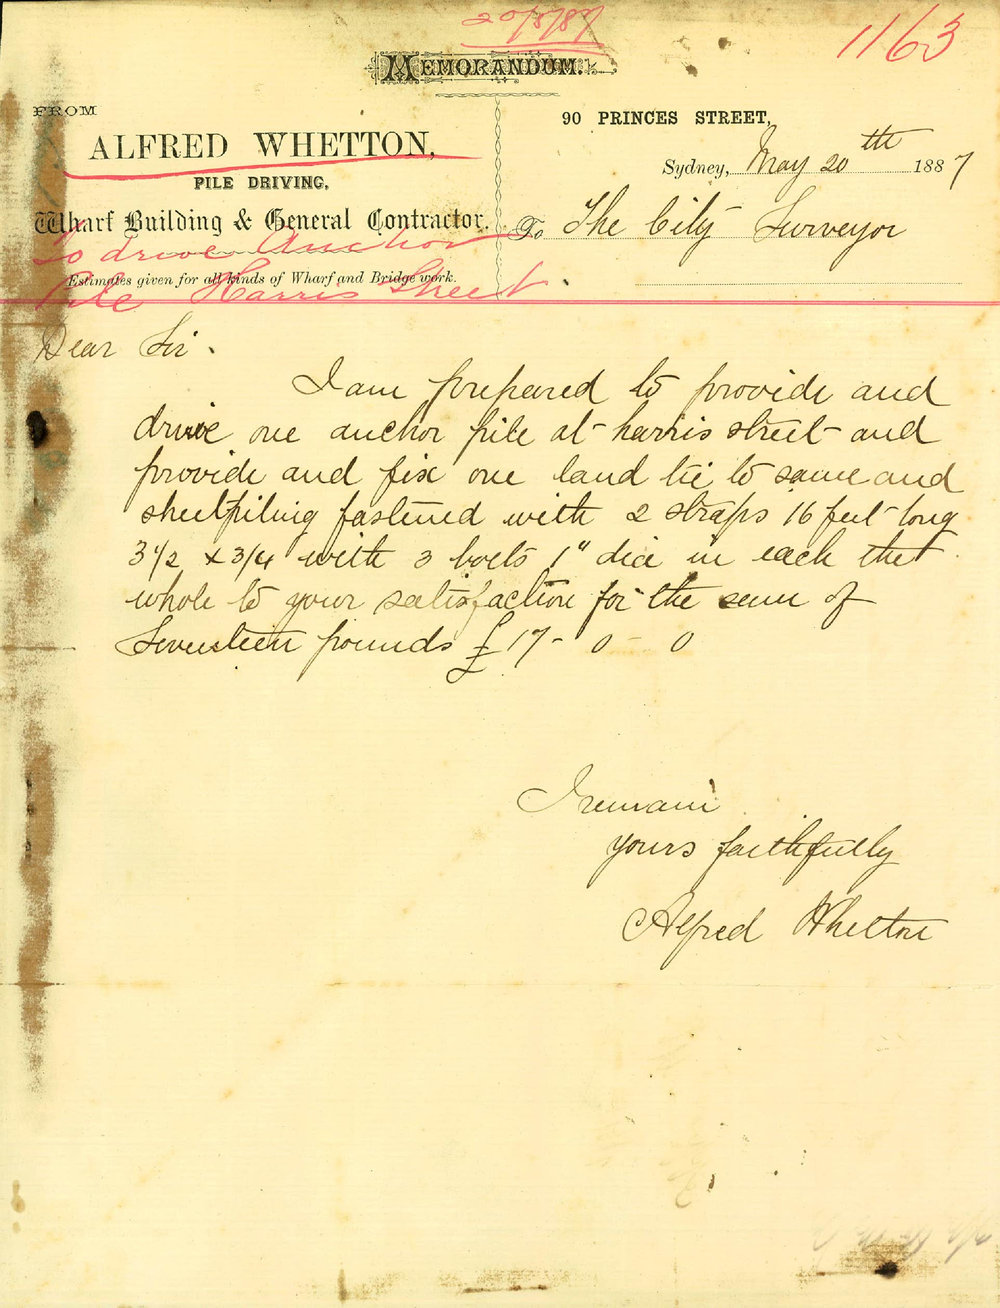 20/5/87
1163
MEMORANDUM.
FROM
ALFRED WHETTON,
PILE DRIVING,
Wharf Building & General Contractor.
To drive Anchor
Estimates given for all kinds of Wharf and Bridge work.
Pile Harris Street
90 PRINCES STREET,
Sydney, May 20th 1887
To The City Surveyor
Dear Sir.
I am prepared to provide and
drive one anchor pile at harris street and
provide and fix one land tie to same and
sheetpiling fastened with 2 straps 16 feet long
3 1/2 x 3/4 with 3 bolts 1" dia in each the
whole to your satisfaction for the sum of
Seventeen pounds £17-0-0
I remain
yours faithfully
Alfred Whetton